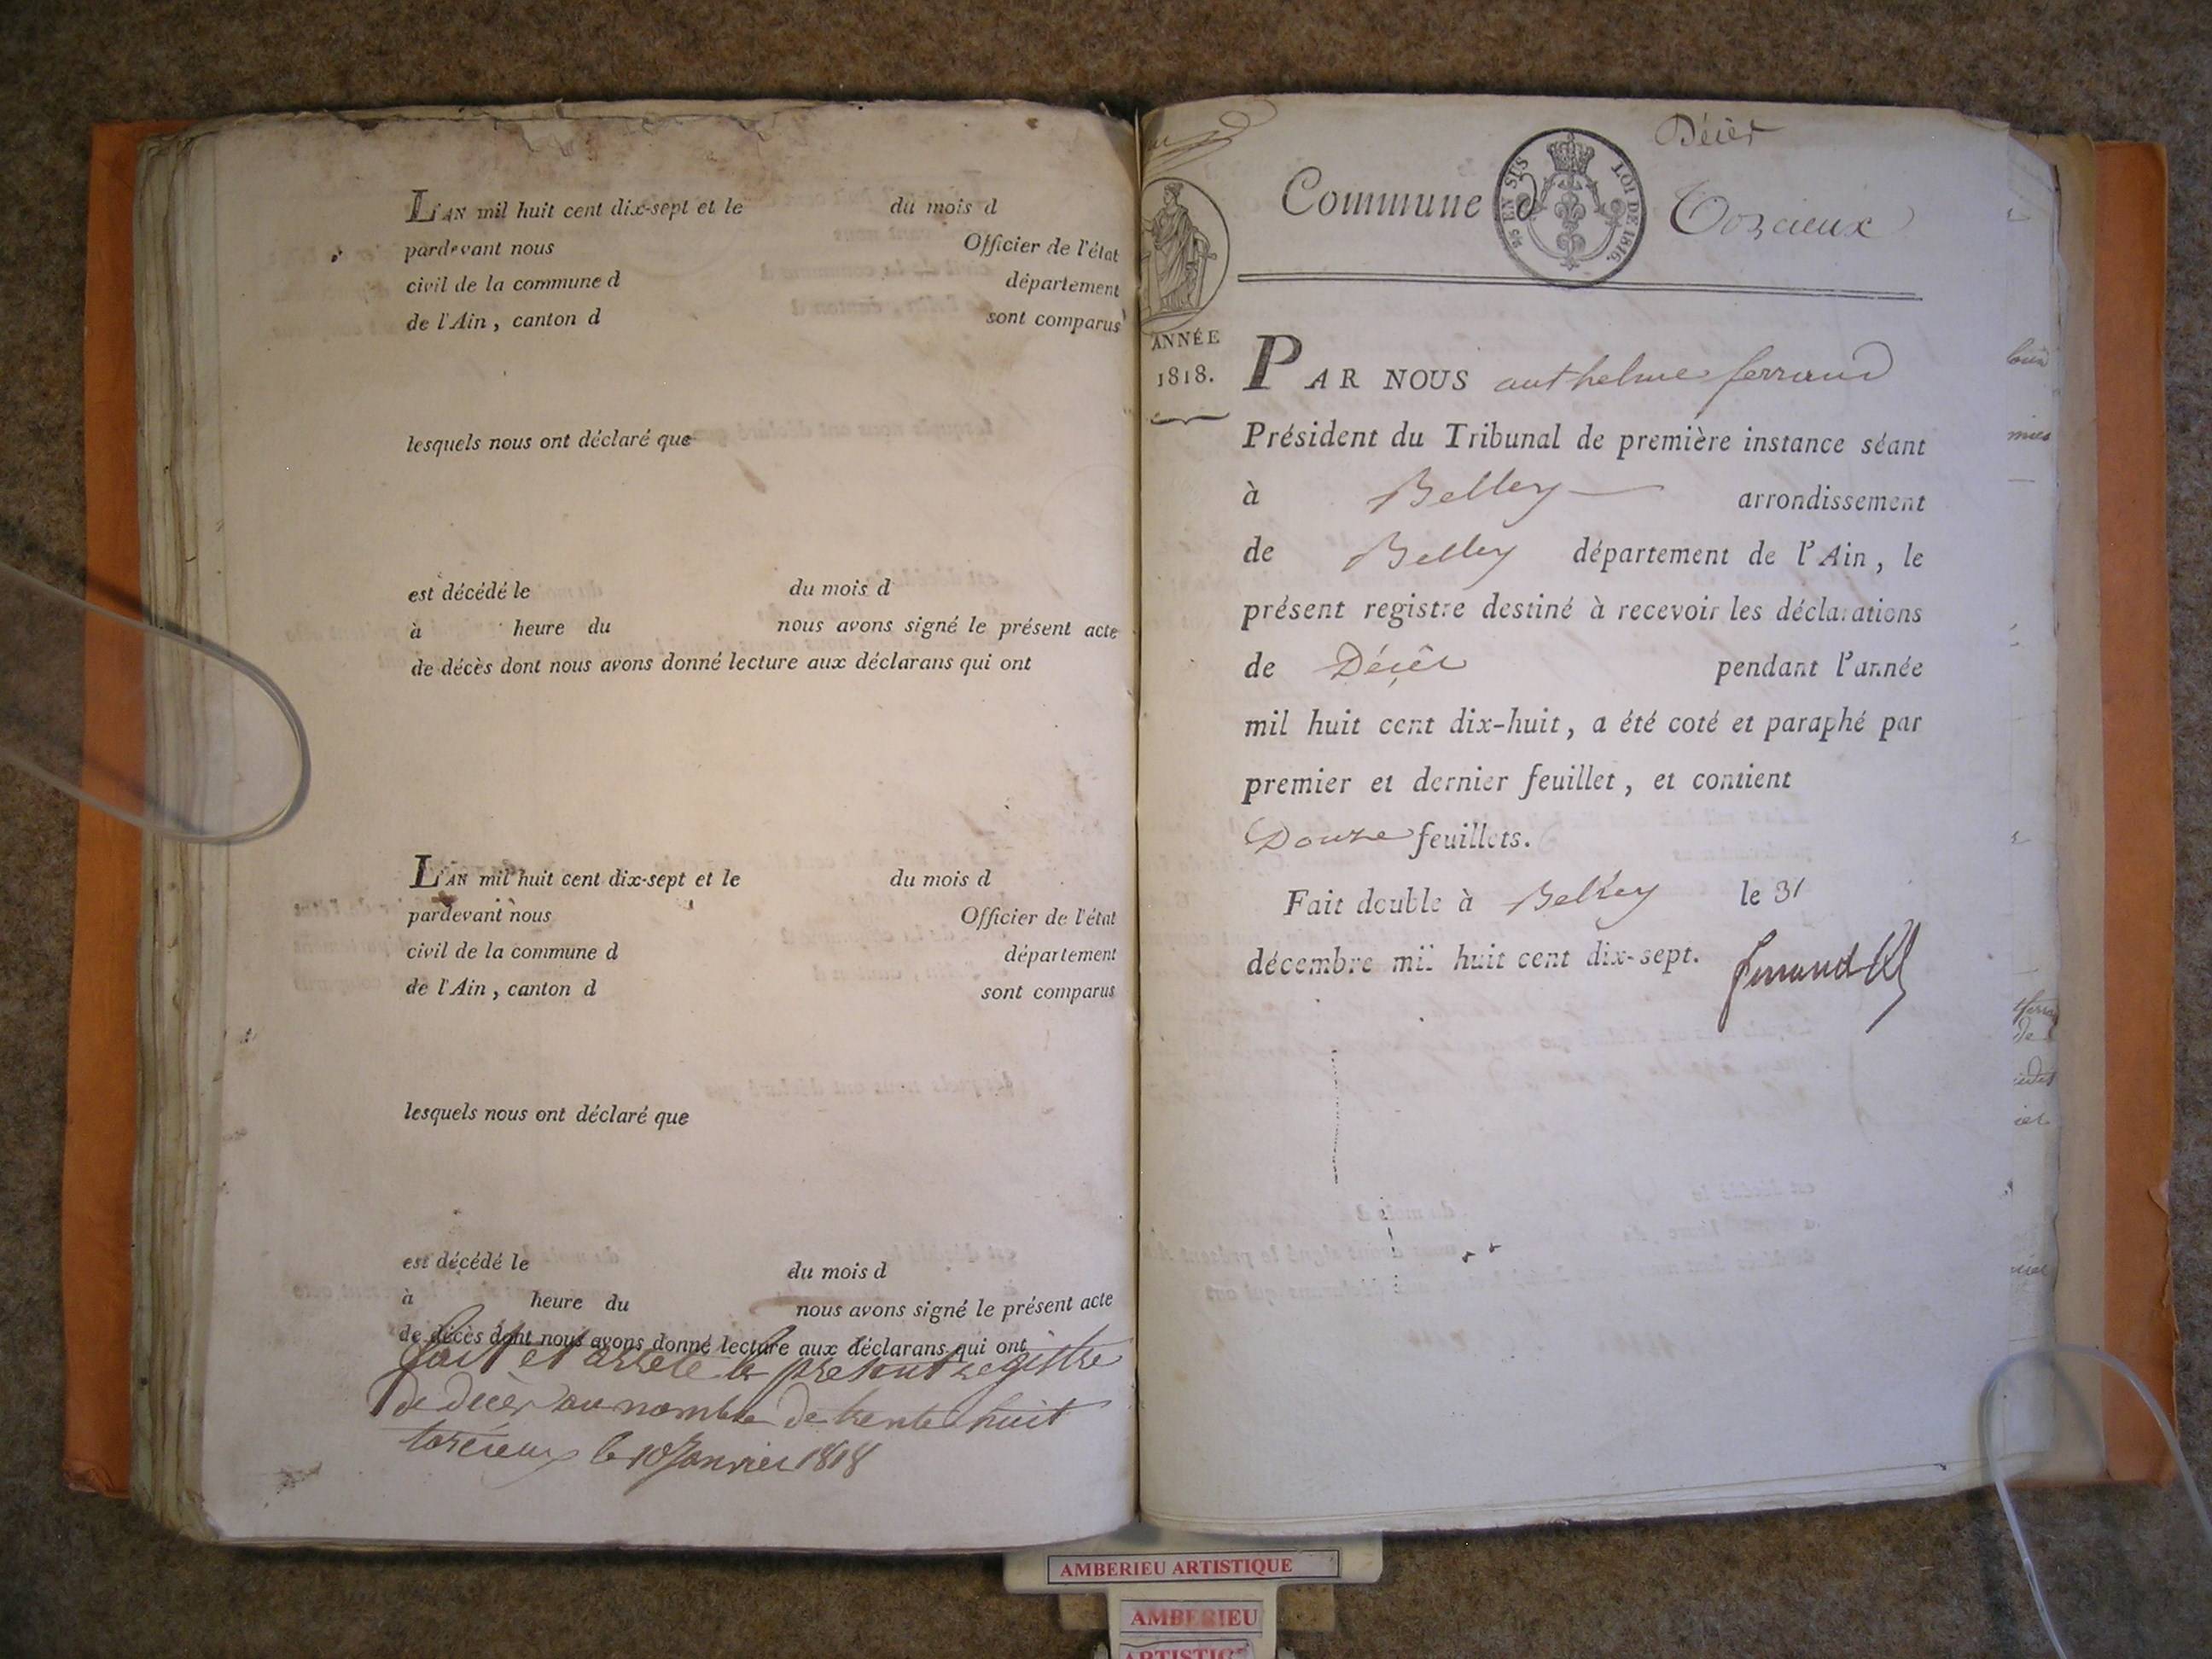 L'AN mil huit cent dix-sept et le du mois d
pardevant nous Officier de l'état
civil de la commune d département
de l'Ain, canton d sont comparus
lesquels nous ont déclaré que
est décédé le du mois d
à heure du nous avons signé le présent acte
de décès dont nous avons donné lecture aux déclarans qui ont
L'AN mil huit cent dix-sept et le du mois d
pardevant nous Officier de l'état
civil de la commune d département
de l'Ain, canton d sont comparus
lesquels nous ont déclaré que
est décédé le du mois d
à heure du nous avons signé le présent acte
de décès dont nous avons donné lecture aux déclarans qui ont
fait et arrete le present registre
de decès au nombre de trente huit
torcieux le 10 Janvier 1818
Décès
Commune d Torcieux
EN SUS LOI DE 1816.
ANNÉE
1818.
PAR NOUS anthelme ferrand
Président du Tribunal de première instance séant
à Belley arrondissement
de Belley département de l'Ain, le
présent registre destiné à recevoir les déclarations
de Décès pendant l'année
mil huit cent dix-huit, a été coté et paraphé par
premier et dernier feuillet, et contient
Douze feuillets.
Fait double à Belley le 31
décembre mil huit cent dix-sept. ferrand
AMBERIEU ARTISTIQUE
AMBERIEU